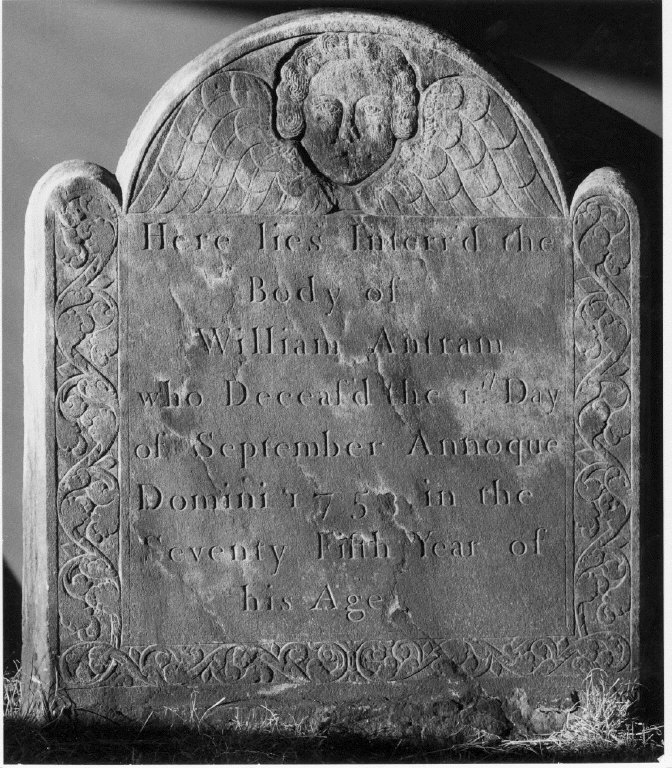 Here lies Interr'd the
Body of
William Antram
who Deceaſ'd the 1ſt Day
of September Annoque
Domini 1753, in the
Seventy Fifth Year of
his Age.